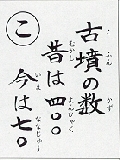 こ
・ふん かず
古墳の数
むかし よんひゃく
昔は四〇〇
いま ななじゅう
今は七〇